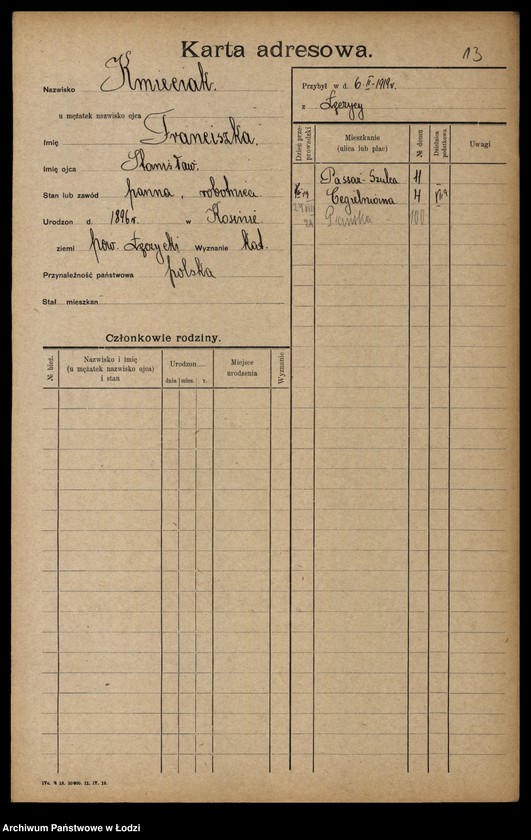 Karta adresowa.
13
Nazwisko Kmieciak.
u mężatek nazwisko ojca
Imię Franciszka.
Imię ojca Stanisław.
Stan lub zawód panna, robotnica
Urodzon d. 1896r. w Kosinie
ziemi pow. Łęczycki Wyznanie kat.
Przynależność państwowa polska
Stał mieszkan
Przybył w d. 6 II-1919r.
z Łęczycy
Dzień przeprowadzki
Mieszkanie
(ulica lub plac)
№ domu
Dzielnica podatkowa
Uwagi
Passaż-Szulca 11
Cegielniana 4
Pańska 100
Członkowie rodziny.
№ bież.
Nazwisko i imię
(u mężatek nazwisko ojca)
i stan
Urodzon
dnia mies. r.
Miejsce
urodzenia
Wyznanie
Archiwum Państwowe w Łodzi